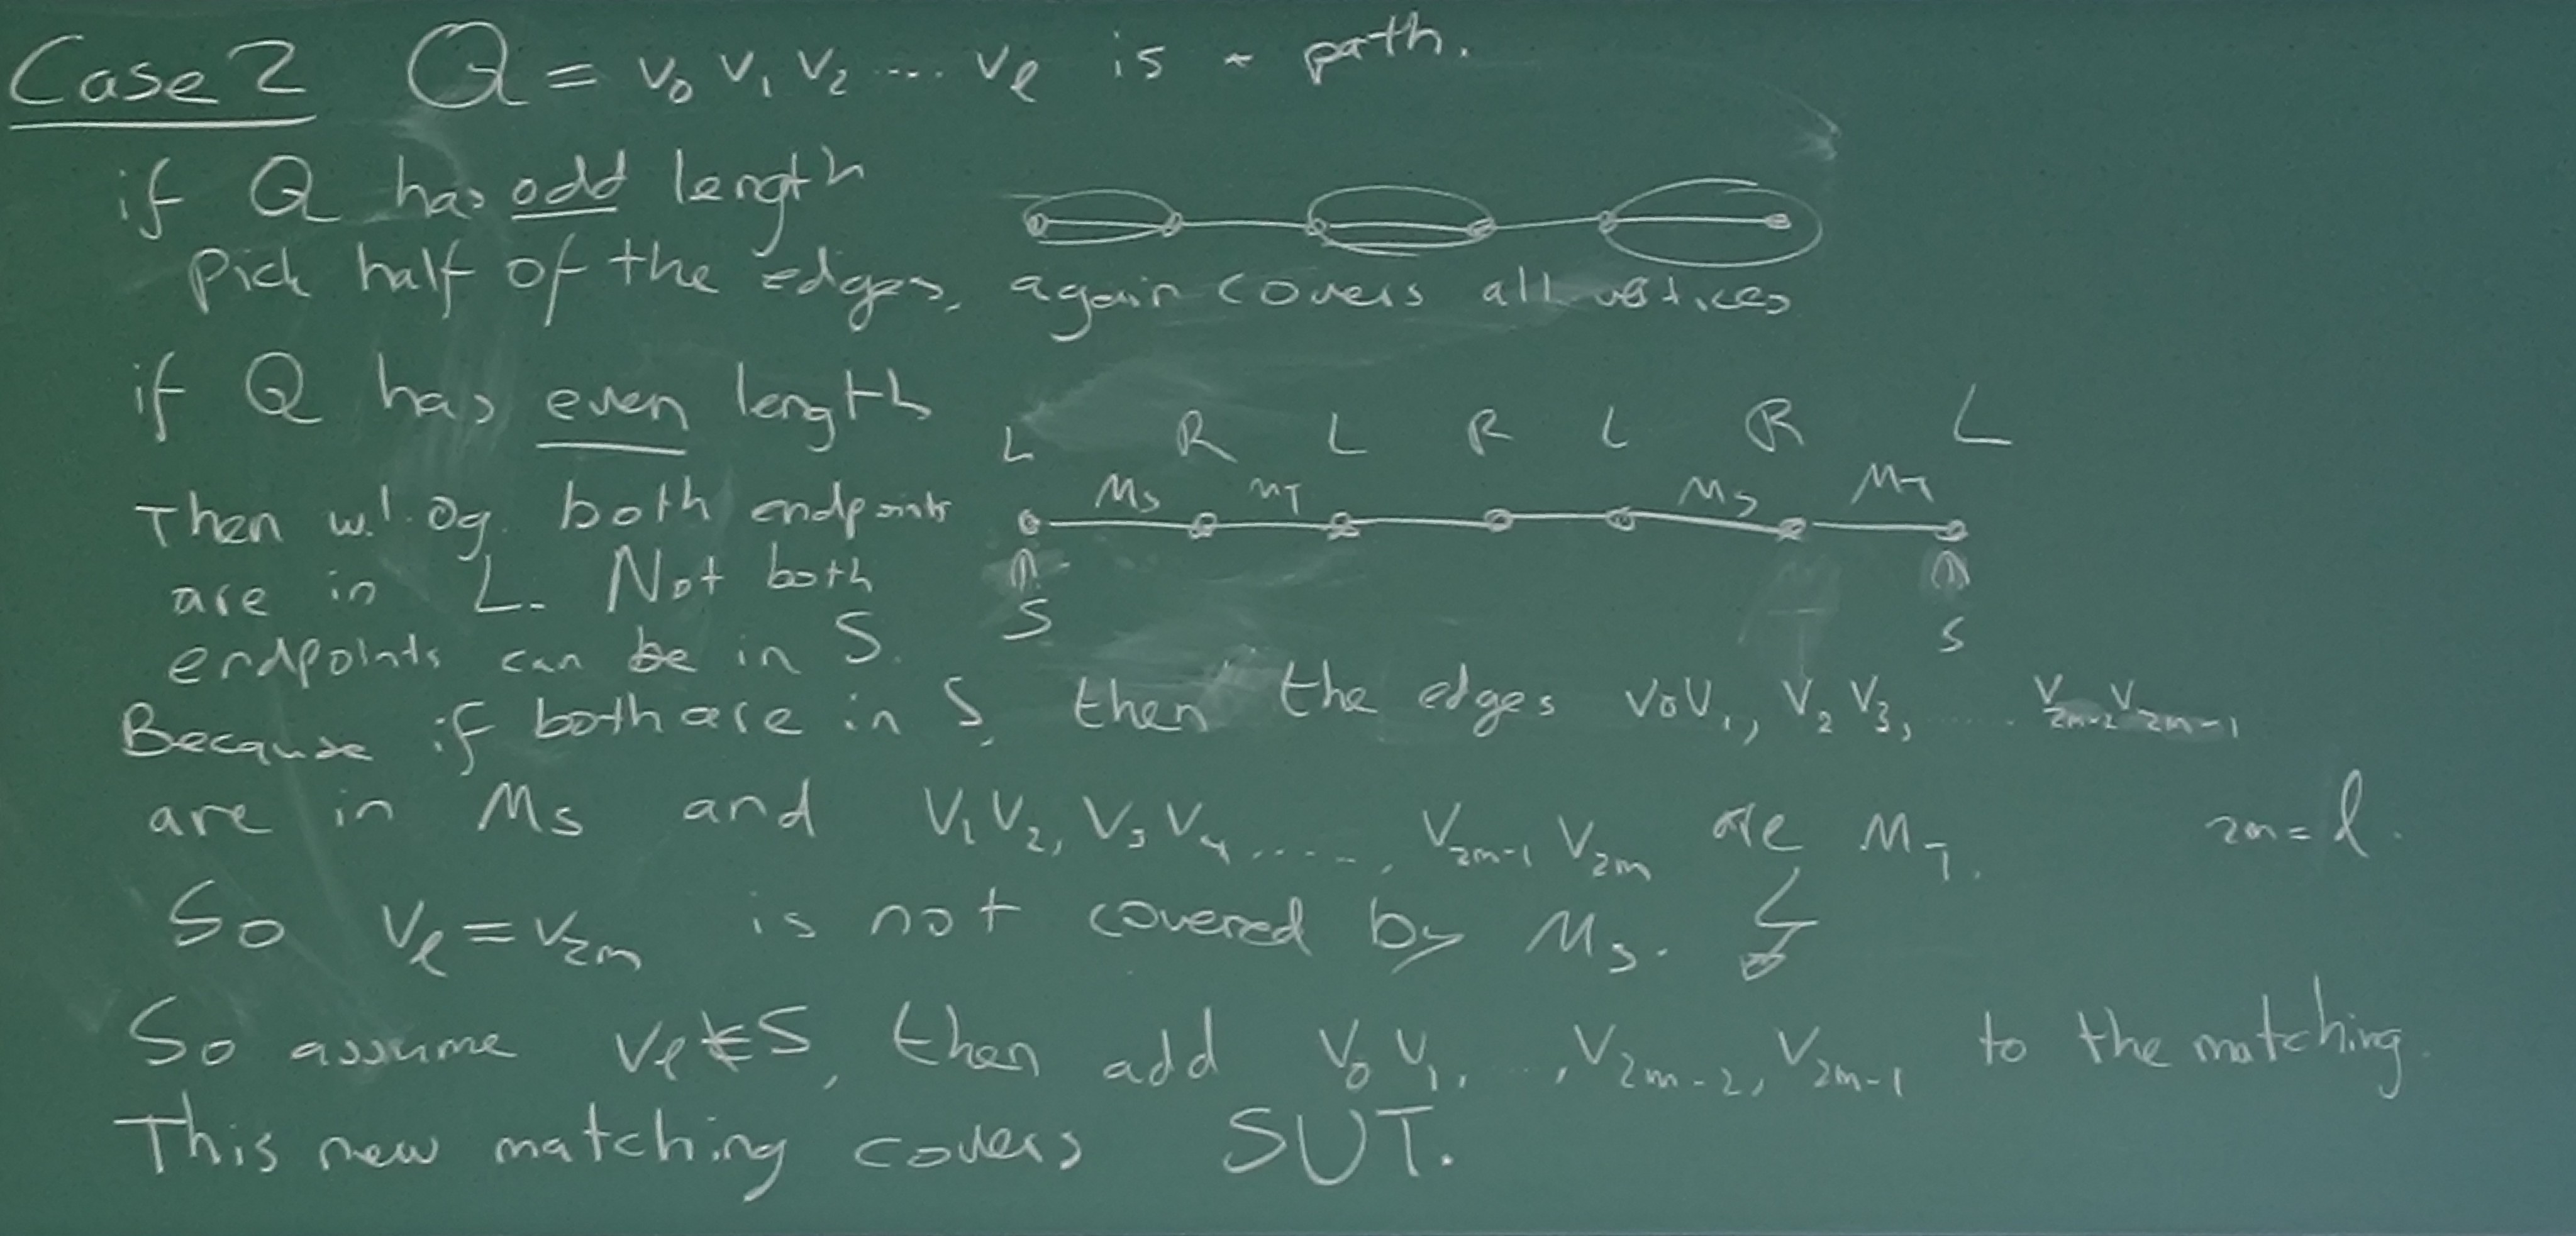 Case 2 Q = v₀ v₁ v₂ .... v_ℓ is a path.
if Q has odd length
pick half of the edges, again covers all vertices
if Q has even length
L R L R L R L
Then w.l.og. both endpoints
M_S M_T M_S M_T
are in L. Not both
endpoints can be in S.
S S
Because if both are in S, then the edges v₀v₁, v₂v₃, ..... v_{2m-2}v_{2m-1}
are in M_S and v₁v₂, v₃v₄, ....., v_{2m-1}v_{2m} are M_T. 2m = ℓ.
So v_ℓ = v_{2m} is not covered by M_S. ↯
So assume v_ℓ ∉ S, then add v₀v₁, ..., v_{2m-2}, v_{2m-1} to the matching.
This new matching covers S∪T.